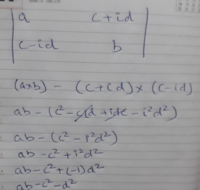 | a c+id |
| c-id b |
(a×b) - (c+id)×(c-id)
ab - (c² - cid + idc - i²d²)
ab - (c² - i²d²)
ab - c² + i²d²
ab - c² + (-1)d²
ab - c² - d²